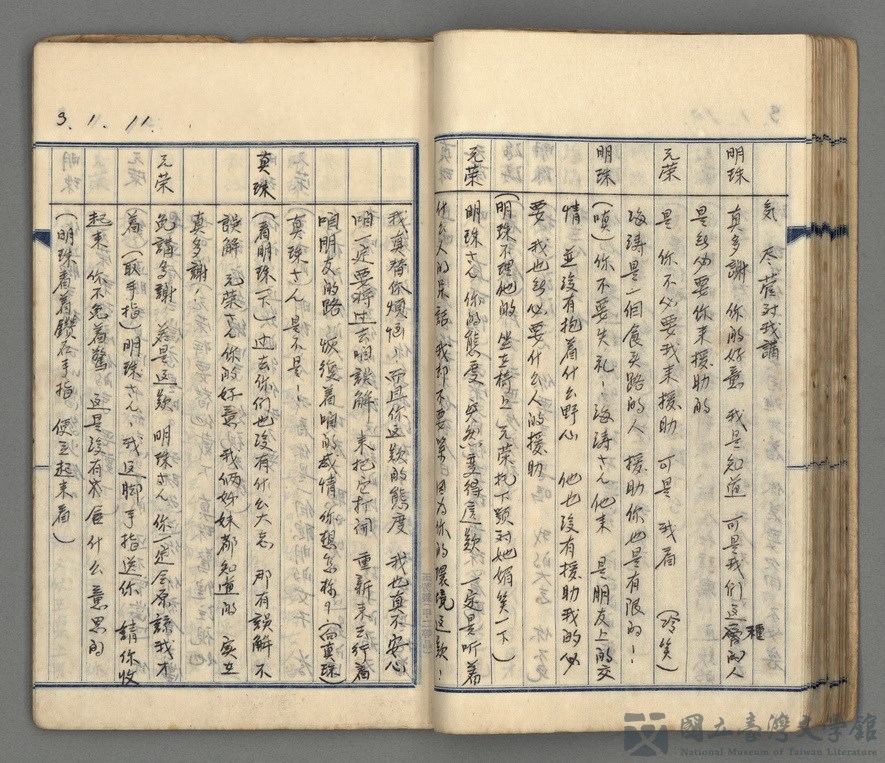 氣 尽管对我講
明珠 真多謝 你的好意 我是知道 可是我们这種的人
是絲必要你来援助的
元荣 是 你不必要我来援助 可是 我看 (冷笑)
海涛是一個食头路的人 援助你也是有限的！
明珠 (嗔) 你不要失礼！海涛さん他来 是朋友上的交
情 並没有抱着什么野心 他也没有援助我的必
要 我也絲必要什么人的援助
(明珠不理他的 坐在椅上 元荣 下顎对她媚笑一下)
元荣 明珠さん 你的態度 突然変得這款 一定是听着
什么人的 話 我却不要 因为你的環境这款！
我真替你煩恼 而且你这款的態度 我也真不安心
咱一定要将过去咱誤解 来把它打開 重新来 行着
咱朋友的路 恢復着咱的感情 你想怎樣？(向真珠)
真珠さん 是不是！
真珠 (看明珠一下) 过去你们也没有什么大志 那有誤解 不
誤解 元荣さん你的好意 我俩姉妹都知道的 实在
真多謝！
元荣 免講多謝 若是这款 明珠さん 你一定会原諒我才
着 (取手指) 明珠さん！我这脚手指送你 請你收
起来 你不免着驚 这是没有 什么意思的
(明珠看着鑽石手指 便立起来看)
3. 1. 11.
國立臺灣文學館
National Museum of Taiwan Literature